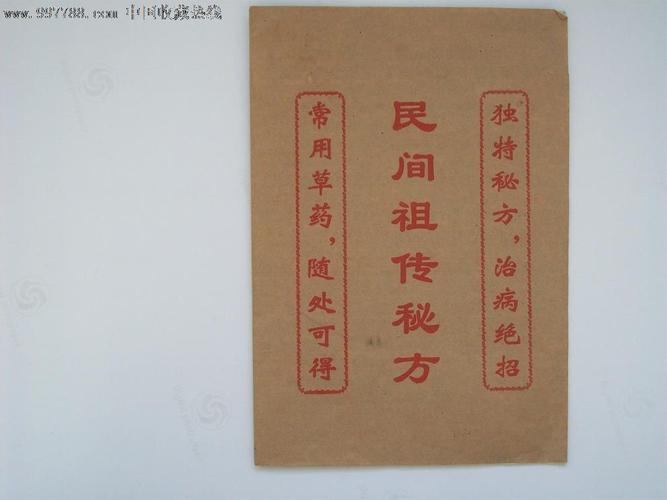 www.997788.com 中国收藏热线
独特秘方，治病绝招
民间祖传秘方
常用草药，随处可得